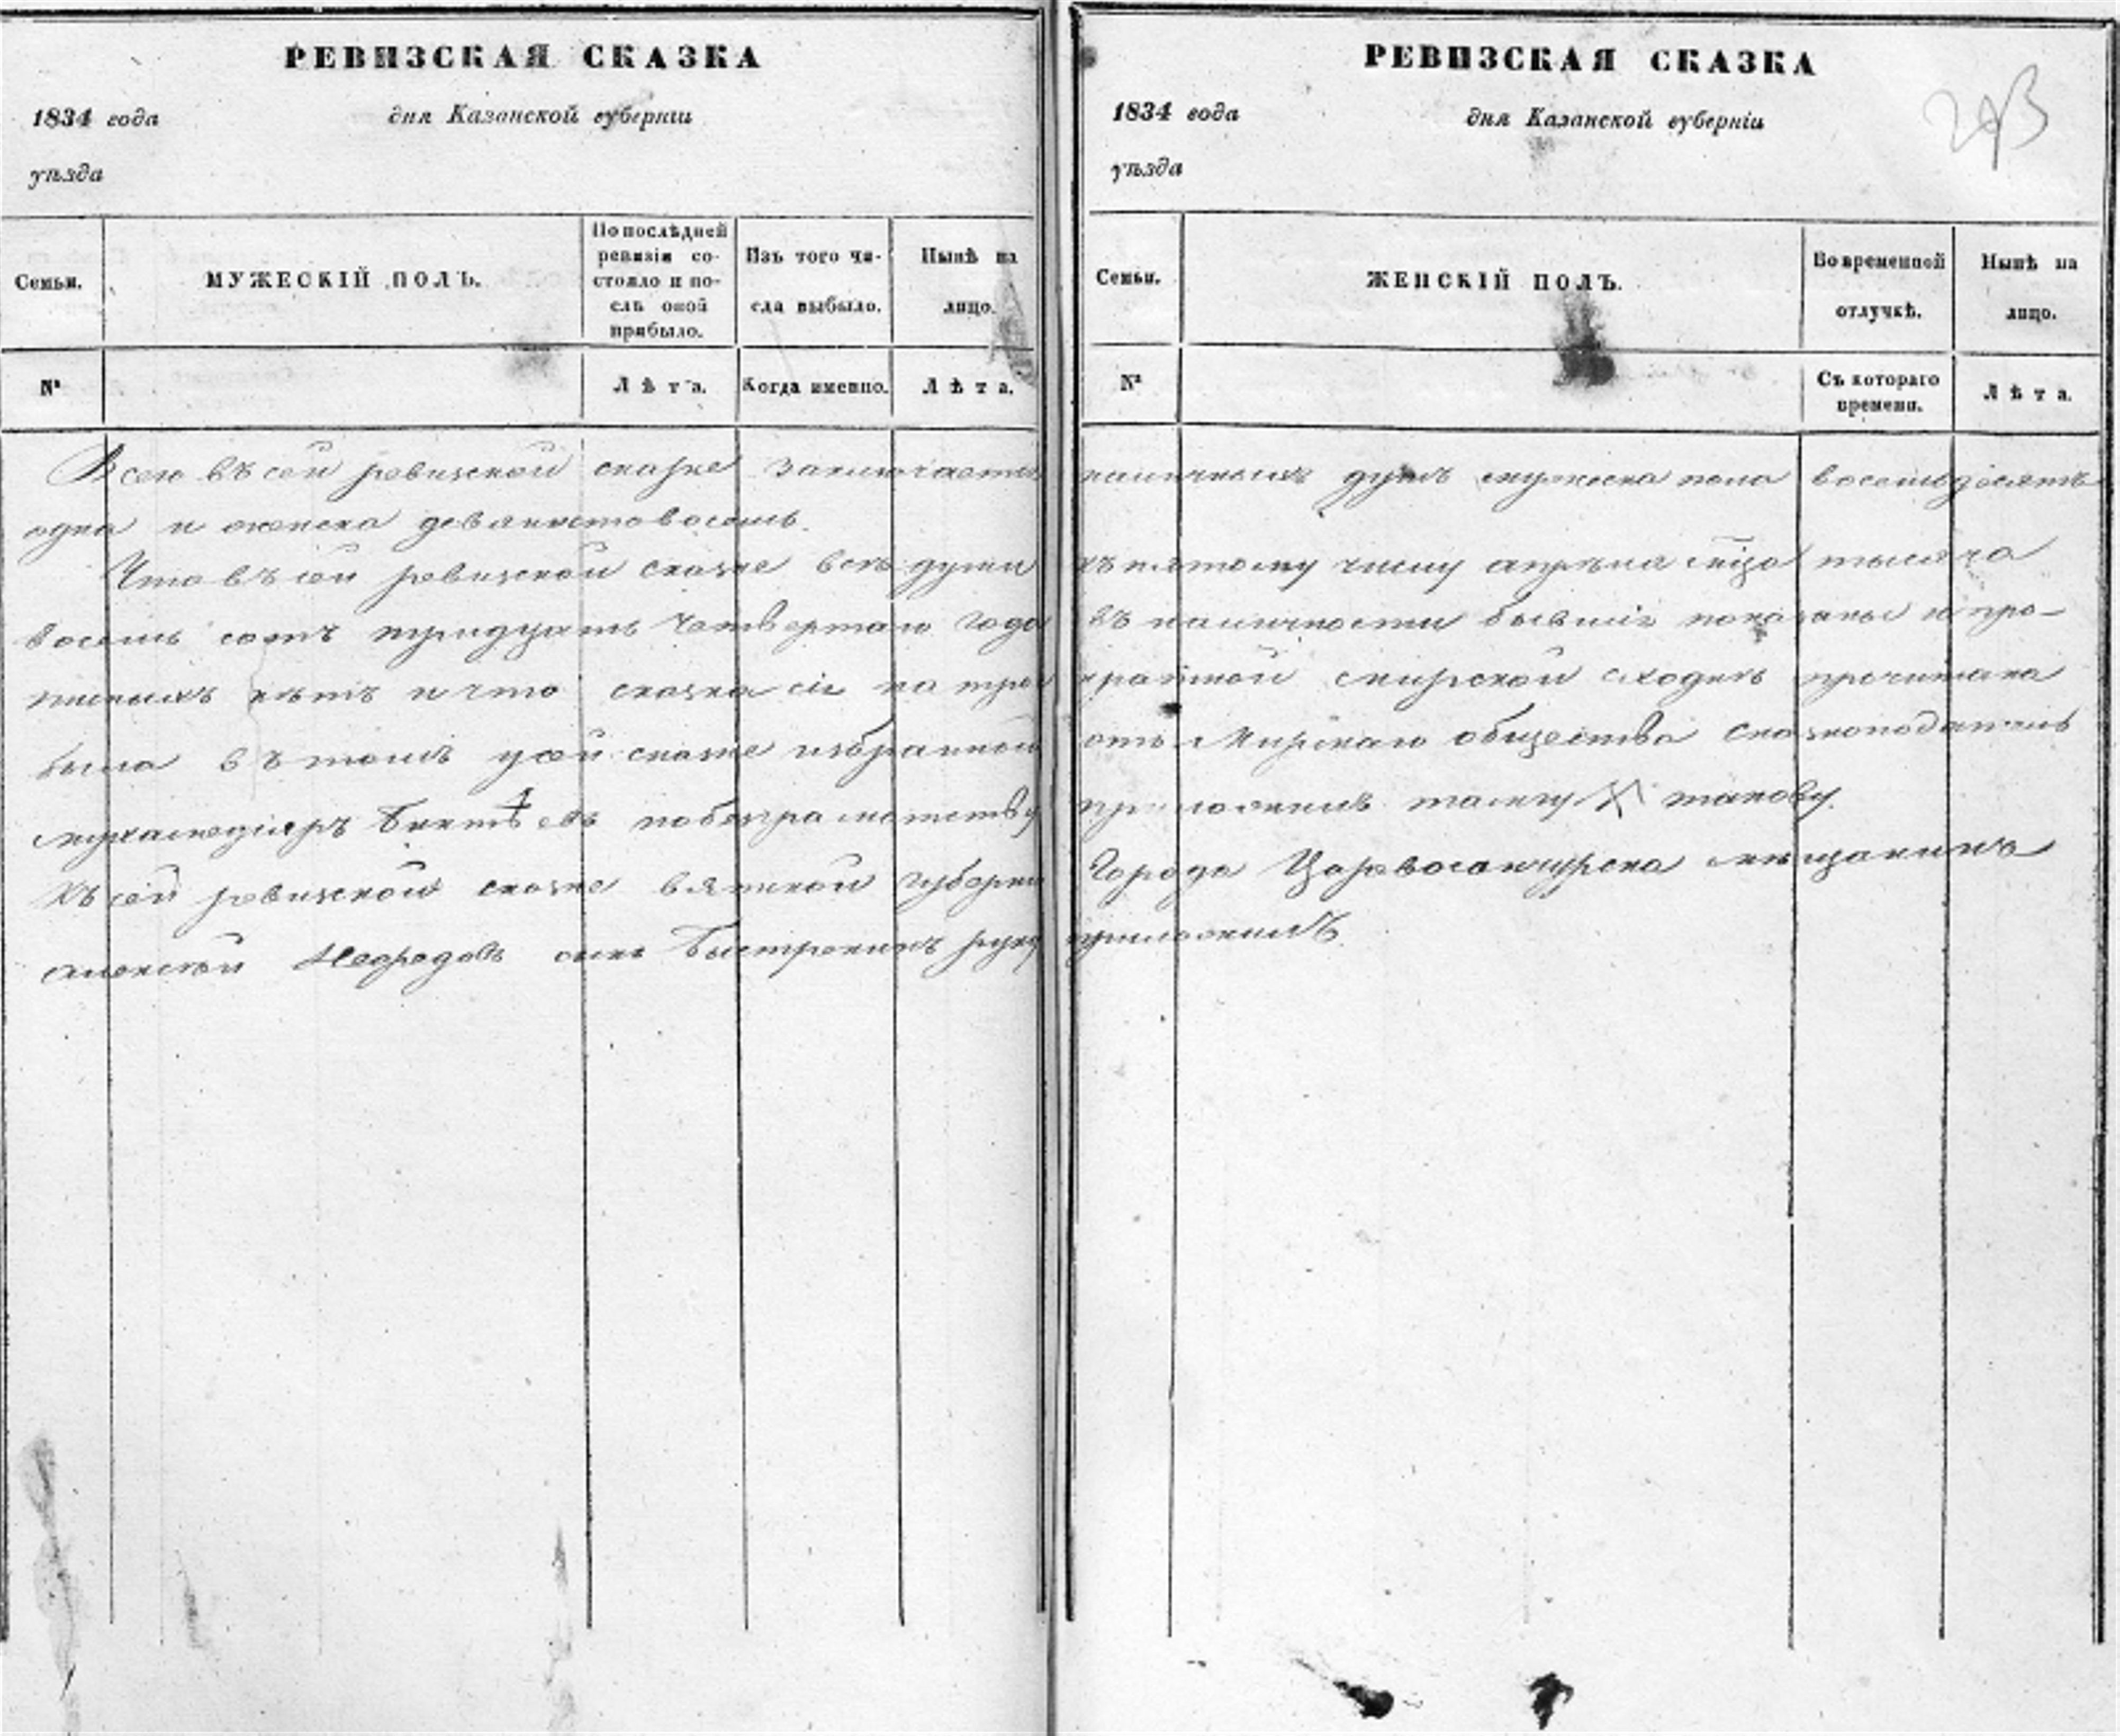 РЕВИЗСКАЯ СКАЗКА
1834 года дня Казанской губерніи
уѣзда
Семьи.
МУЖЕСКІЙ ПОЛЪ.
По послѣдней
ревизіи со-
стояло и по-
слѣ оной
прибыло.
Изъ того чи-
сла выбыло.
Нынѣ на
лицо.
№
Лѣта.
Когда именно.
Лѣта.
РЕВИЗСКАЯ СКАЗКА
1834 года дня Казанской губерніи
уѣзда
Семьи.
ЖЕНСКІЙ ПОЛЪ.
Во временной
отлучкѣ.
Нынѣ на
лицо.
№
Съ котораго
времени.
Лѣта.
Всего въ сей ревизской сказке заключается наличныхъ душъ мужеска пола восемьдесятъ
одна и женска девяносто восемь.
Что въ сей ревизской сказке всѣ души къ пятому числу апрѣля мца тысяча
восемь сотъ тридцать четвертаго года въ наличности бывшіе показаны и про-
писныхъ нѣтъ и что сказка сія на мирской сходкѣ прочитана
была въ томъ у сей сказке избранной отъ Мирскаго общества сказкоподатель
по безграмотству приложилъ тамгу такову.
Къ сей ревизской сказке вятской губернии Города Царевосанчурска мещанинъ
алексей сынъ Быстренинъ руку приложилъ